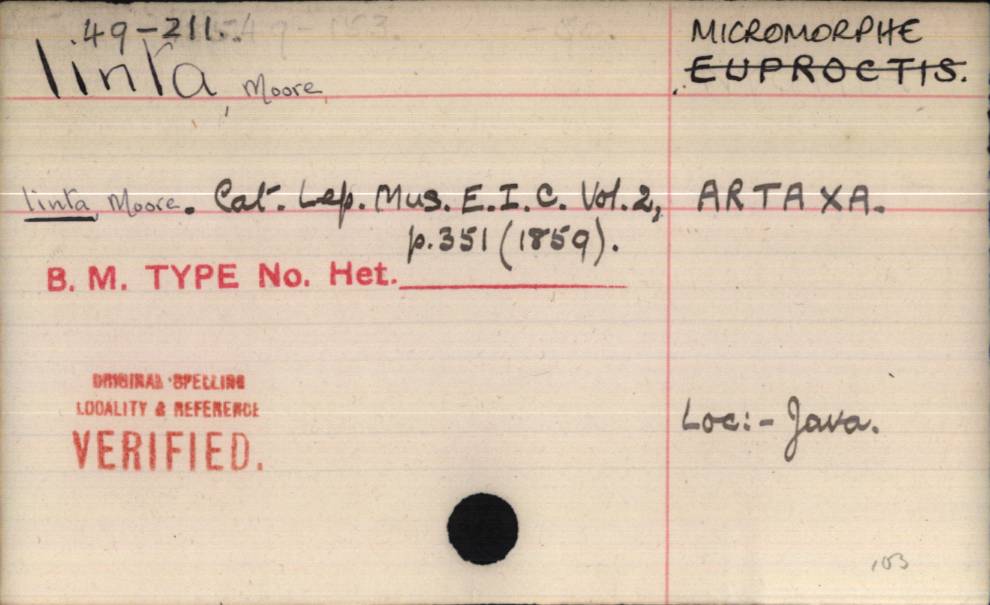 .49-211..
MICROMORPHE
linta, Moore,
EUPROCTIS.
linta, Moore. Cat. Lep. Mus. E.I.C. Vol. 2, ARTAXA.
p.351 (1859).
B. M. TYPE No. Het.
ORIGINAL SPELLING
LOCALITY & REFERENCE
VERIFIED.
Loc:- Java.
103